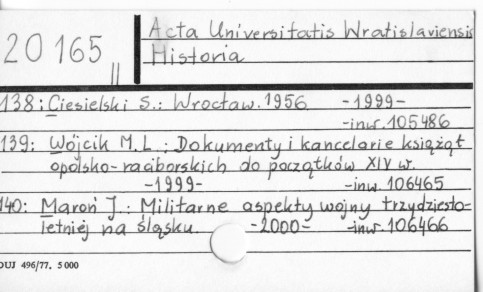 20 165 II
Acta Universitatis Wratislaviensis
Historia
138: Ciesielski S.: Wrocław. 1956 -1999-
-inw. 105486
139: Wójcik M.L.: Dokumenty i kancelarie książąt
opolsko-raciborskich do początków XIV w.
-1999- -inw. 106465
140: Maroń J.: Militarne aspekty wojny trzydziesto-
letniej na Śląsku. -2000- -inw. 106466
DUJ 496/77. 5 000